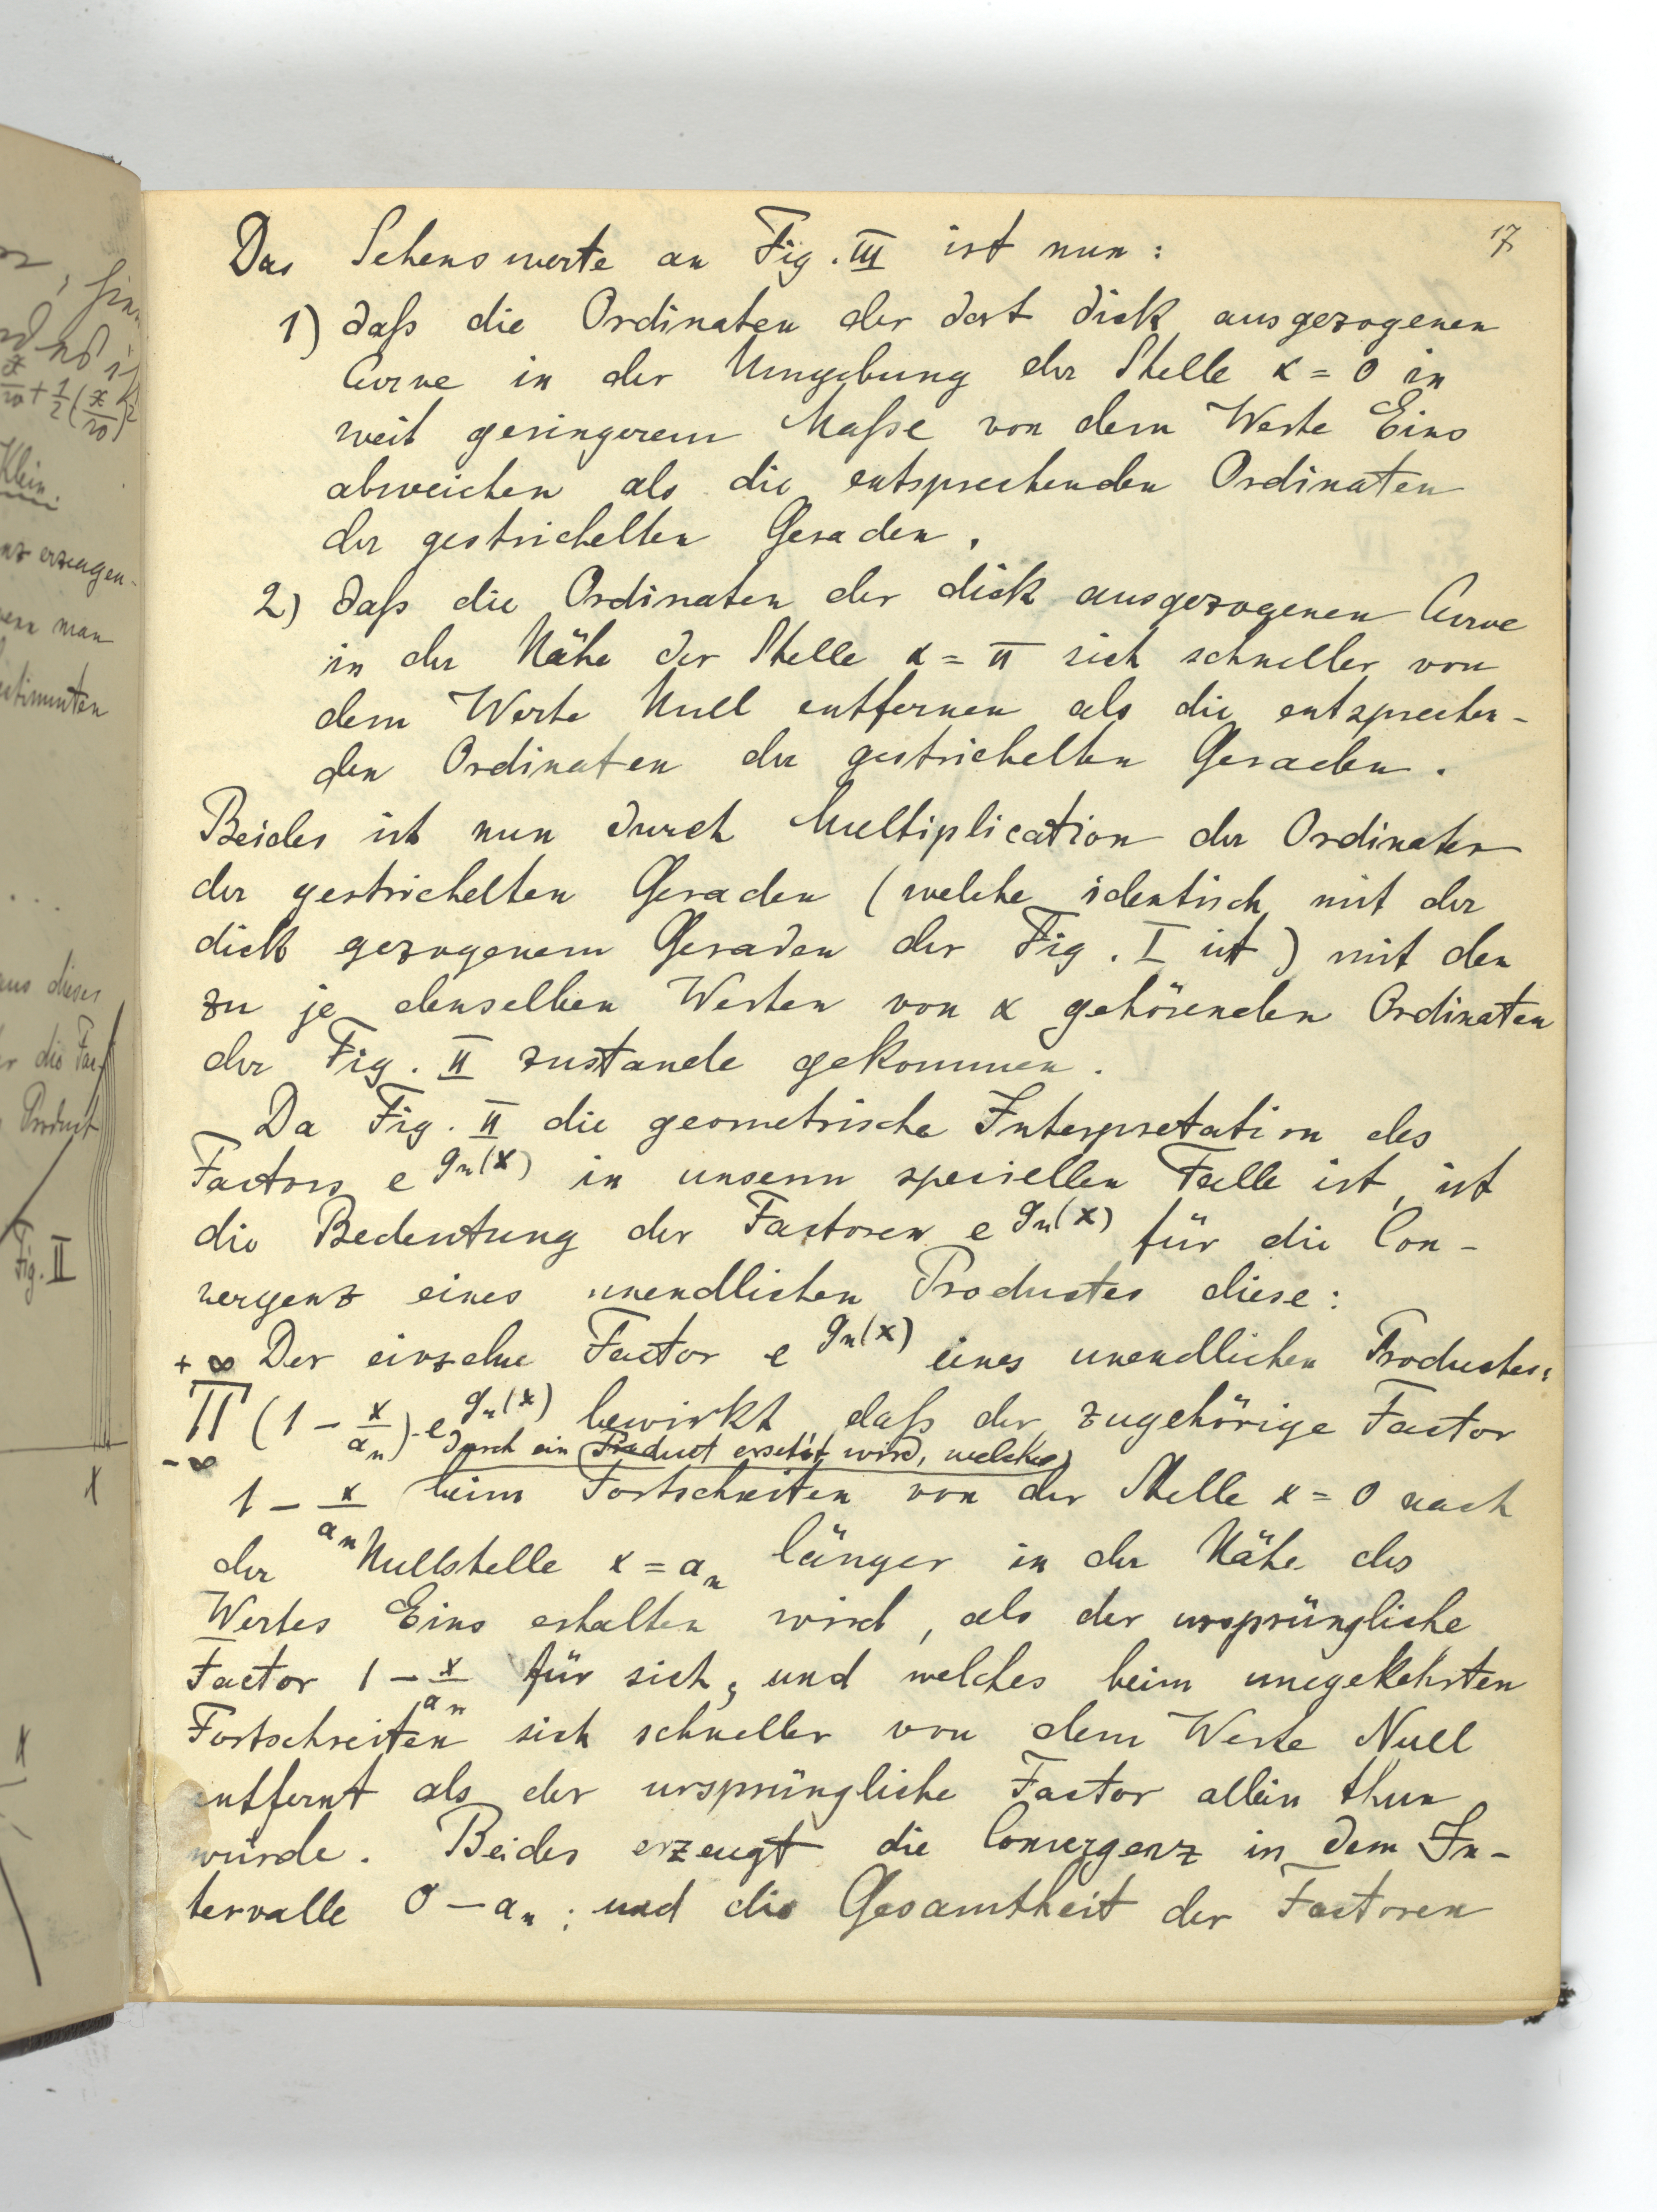 17
Das Sehenswerte an Fig. III ist nun:
1) daß die Ordinaten der dort dick ausgezogenen
Curve in der Umgebung der Stelle x = 0 in
weit geringerem Maße von dem Werte Eins
abweichen als die entsprechenden Ordinaten
der gestrichelten Geraden.
2) daß die Ordinaten der dick ausgezogenen Curve
in der Nähe der Stelle x = π sich schneller von
dem Werte Null entfernen als die entsprechen-
den Ordinaten der gestrichelten Geraden.
Beides ist nun durch Multiplication der Ordinaten
der gestrichelten Geraden (welche identisch mit der
dick gezogenem Geraden der Fig. I ist) mit den
zu je denselben Werten von x gehörenden Ordinaten
der Fig. II zustande gekommen.
Da Fig. II die geometrische Interpretation des
Factors e^{g_n(x)} in unserm speciellen Falle ist, ist
die Bedeutung der Factoren e^{g_n(x)} für die Con-
vergenz eines unendlichen Productes diese:
Der einzelne Factor e^{g_n(x)} eines unendlichen Productes:
+∞ ∏ −∞ (1 − x/a_n)·e^{g_n(x)} bewirkt daß der zugehörige Factor
durch ein Product ersetzt wird, welches
1 − x/a_n beim Fortschreiten von der Stelle x = 0 nach
der Nullstelle x = a_n länger in der Nähe des
Wertes Eins erhalten wird, als der ursprüngliche
Factor 1 − x/a_n für sich; und welches beim umgekehrten
Fortschreiten sich schneller von dem Werte Null
entfernt als der ursprüngliche Factor allein thun
würde. Beides erzeugt die Convergenz in dem In-
tervalle 0 — a_n; und die Gesamtheit der Factoren
Klein.
erzeugen-
man
aus dieses
die Fac-
Product
Fig. II
x
x